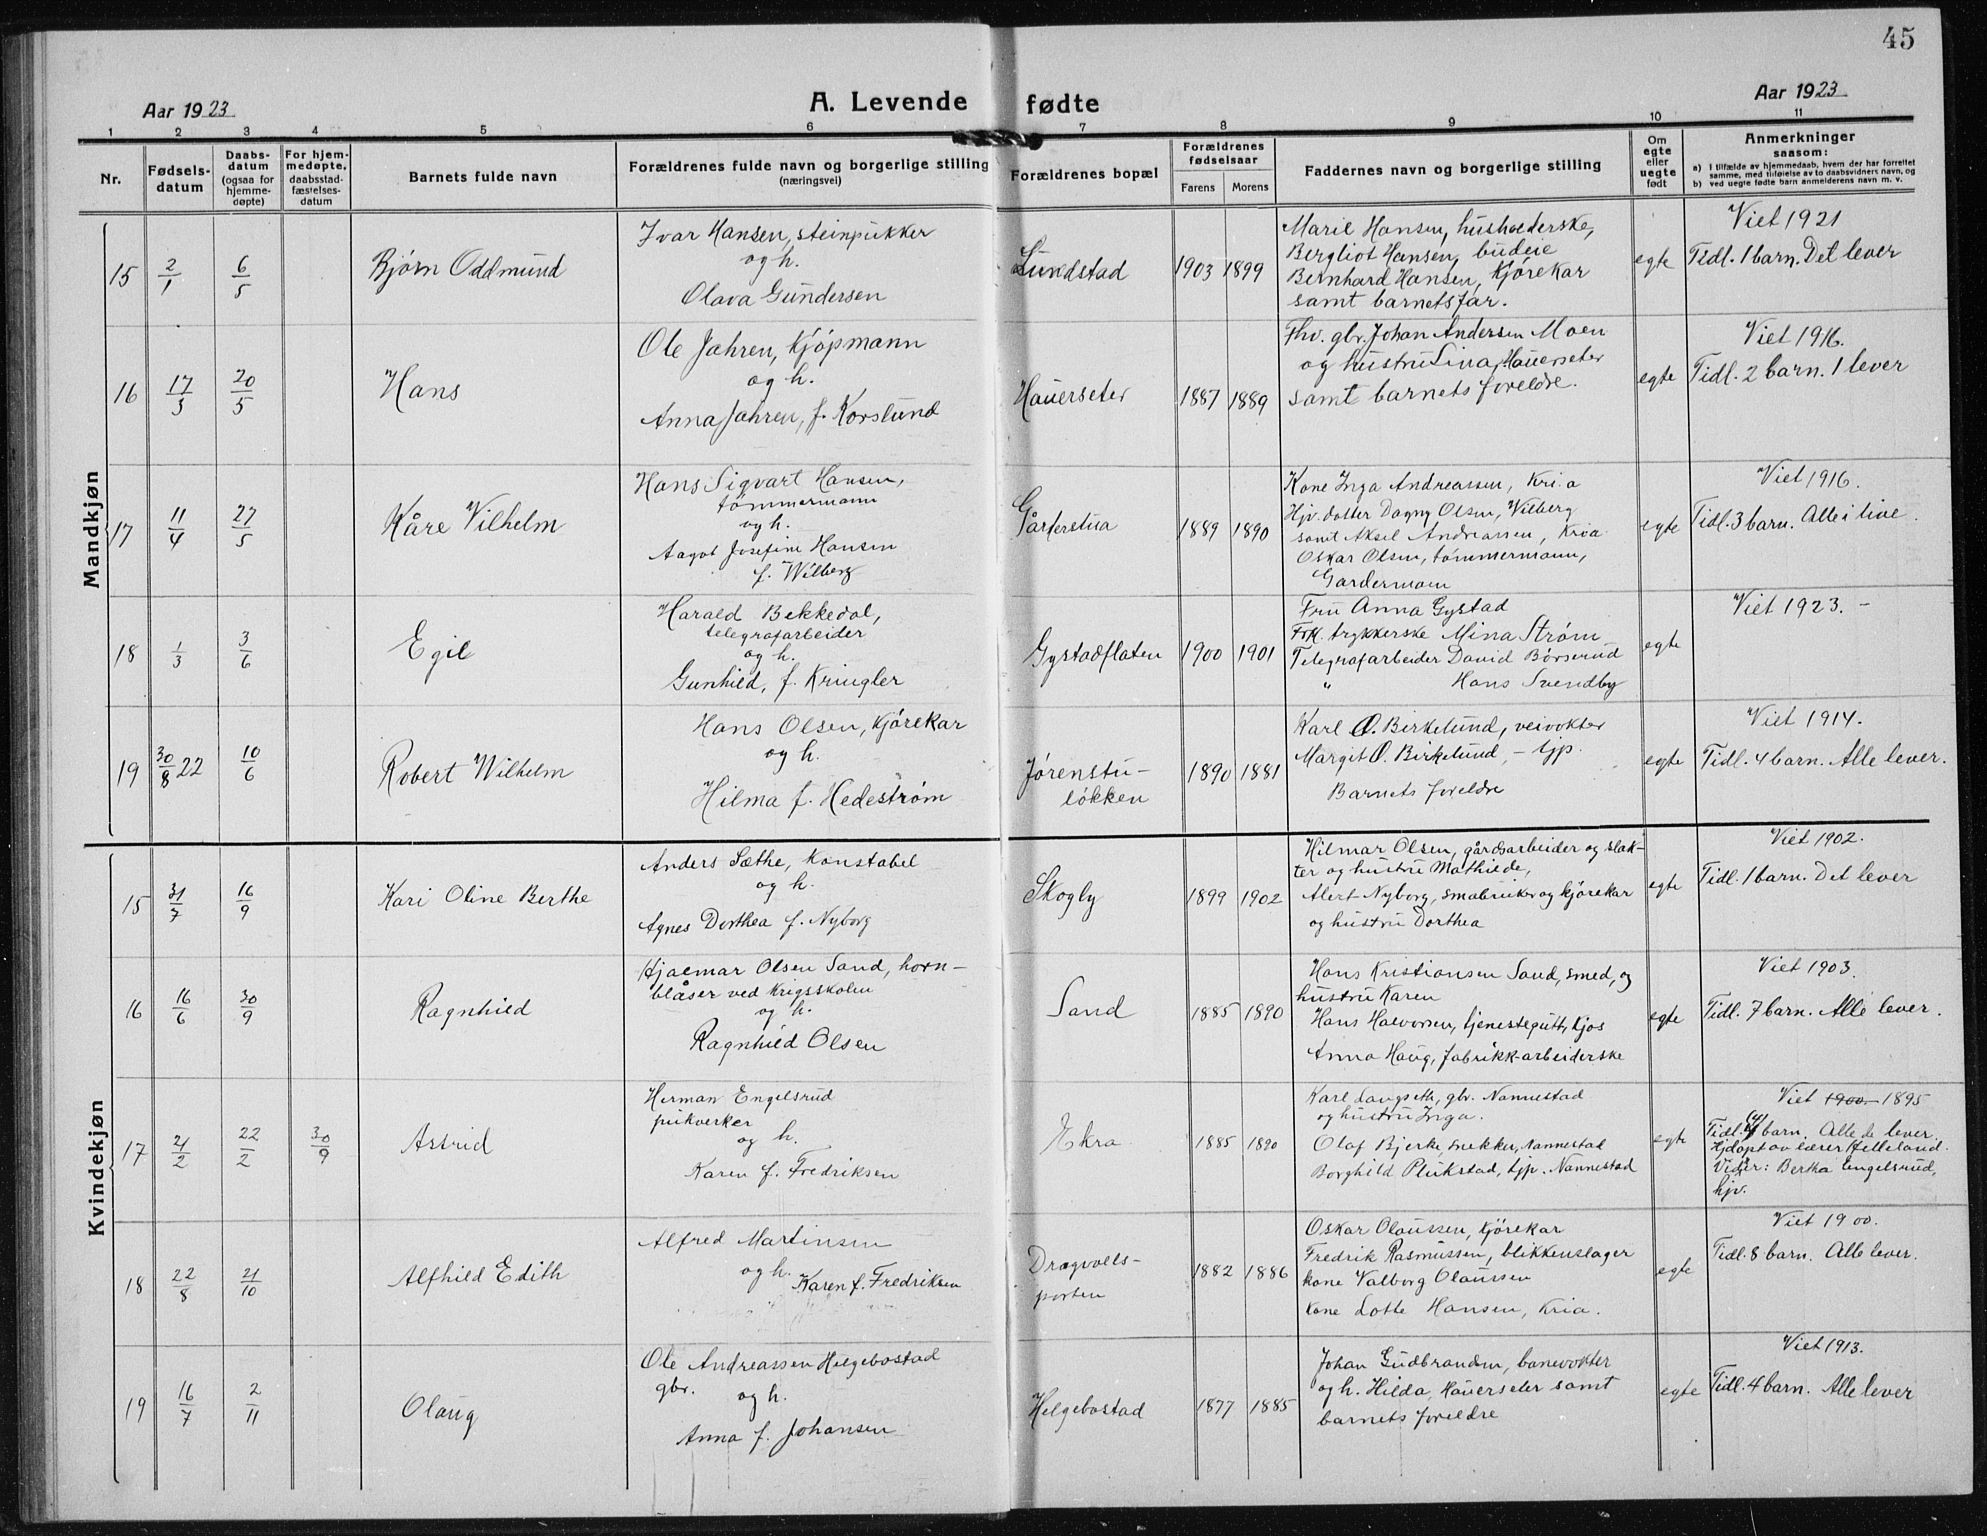 45
Aar 1923
A. Levende fødte
Aar 1923
1 2 3 4 5 6 7 8 9 10 11
Nr.
Fødsels-
datum
Daabs-
datum
(ogsaa for
hjemme-
døpte)
For hjem-
medøpte,
daabsstad-
fæstelses-
datum
Barnets fulde navn
Forældrenes fulde navn og borgerlige stilling
(næringsvei)
Forældrenes bopæl
Forældrenes
fødselsaar
Farens Morens
Faddernes navn og borgerlige stilling
Om
egte
eller
uegte
født
Anmerkninger
saasom:
a) I tilfælde av hjemmedaab, hvem der har forrettet
samme, med tilføielse av to daabsvidners navn, og
b) ved uegte fødte barn anmelderens navn m. v.
Mandkjøn
15 2/1 6/5
Bjørn Oddmund
Ivar Hansen, steinpukker
og h.
Olava Gundersen
Lundstad
1903 1899
Marie Hansen, husholderske,
Bergliot Hansen, budeie
Bernhard Hansen, kjørekar
samt barnets far.
egte
Viet 1921
Tidl. 1 barn. Det lever
16 17/3 20/5
Hans
Ole Jahren, kjøpmann
og h.
Anna Jahren, f. Korslund
Hauerseter
1887 1889
Fhv. gbr. Johan Andersen Moen
og hustru Lina, Hauerseter
samt barnets foreldre.
egte
Viet 1916.
Tidl. 2 barn. 1 lever
17 11/4 27/5
Kåre Vilhelm
Hans Sigvart Hansen,
tømmermann
og h.
Aagot Josefine Hansen
f. Wilberg
1889 1890
Kone Inga Andreassen, Kri.a
Hjv. datter Dagny Olsen, Wilberg
samt Aksel Andreassen, Kria
Oskar Olsen, tømmermann,
Gardermoen
egte
Viet 1916.
Tidl. 3 barn. Alle i live.
18 1/3 3/6
Egil
Harald Bekkedal,
telegrafarbeider
og h.
Gunhild, f. Kringler
Gystadflaten
1900 1901
Fru Anna Gystad
Frk. trykkerske Mina Strøm
Telegrafarbeider David Børserud
" Hans Svendby
egte
Viet 1923. -
19 30/8 22 10/6
Robert Vilhelm
Hans Olsen, kjørekar
og h.
Hilma f. Hedestrøm
Jørenstu-
løkken
1890 1881
Karl O. Birkelund, veivokter
Margit O. Birkelund, - tjp.
Barnets foreldre
egte
Viet 1914.
Tidl. 4 barn. Alle lever.
Kvindekjøn
15 31/7 16/9
Kari Oline Berthe
Anders Sæthe, konstabel
og h.
Agnes Dorthea f. Nyborg
Skogly
1899 1902
Hilmar Olsen, gårdsarbeider og slak-
ter og hustru Mathilde,
Alert Nyborg, småbruker og kjørekar
og hustru Dorthea
egte
Viet 1902.
Tidl. 1 barn. Det lever
16 16/6 30/9
Ragnhild
Hjalmar Olsen Sand, horn-
blåser ved krigsskolen
og h.
Ragnhild Olsen
Sand
1885 1890
Hans Kristiansen Sand, smed, og
hustru Karen
Hans Halvorsen, tjenestegutt, Kjos
Anna Haug, fabrikk-arbeiderske
egte
Viet 1903.
Tidl. 7 barn. Alle lever.
17 21/2 22/2 30/9
Astrid
Herman Engelsrud
pukverker
og h.
Karen f. Fredriksen
Ekra
1885 1890
Karl Langseth, gbr. Nannestad
og hustru Inga.
Olaf Bjerke snekker, Nannestad
Borghild Plukstad, tjp. Nannestad
egte
Viet 1900 1895
Tidl. barn. Alle de lever
Hjdøpt av lærer Helleland.
Vidner: Berka Engelsrud,
hjv.
18 22/8 21/10
Alfhild Edith
Alfred Martinsen
og h.
Karen f. Fredriksen
Dragvolls-
porten
1882 1886
Oskar Olaussen, kjørekar
Fredrik Rasmussen, blikkenslager
kone Valborg Olaussen
kone Lotte Hansen, Kria.
egte
Viet 1900.
Tidl. 8 barn. Alle lever.
19 16/7 2/11
Olaug
Ole Andreassen Helgebostad
gbr.
og h.
Anna f. Johansen
Helgebostad
1877 1885
Johan Gudbrandsen, banevokter
og h. Hilda, Hauerseter samt
barnets foreldre
egte
Viet 1913.
Tidl. 4 barn. Alle lever